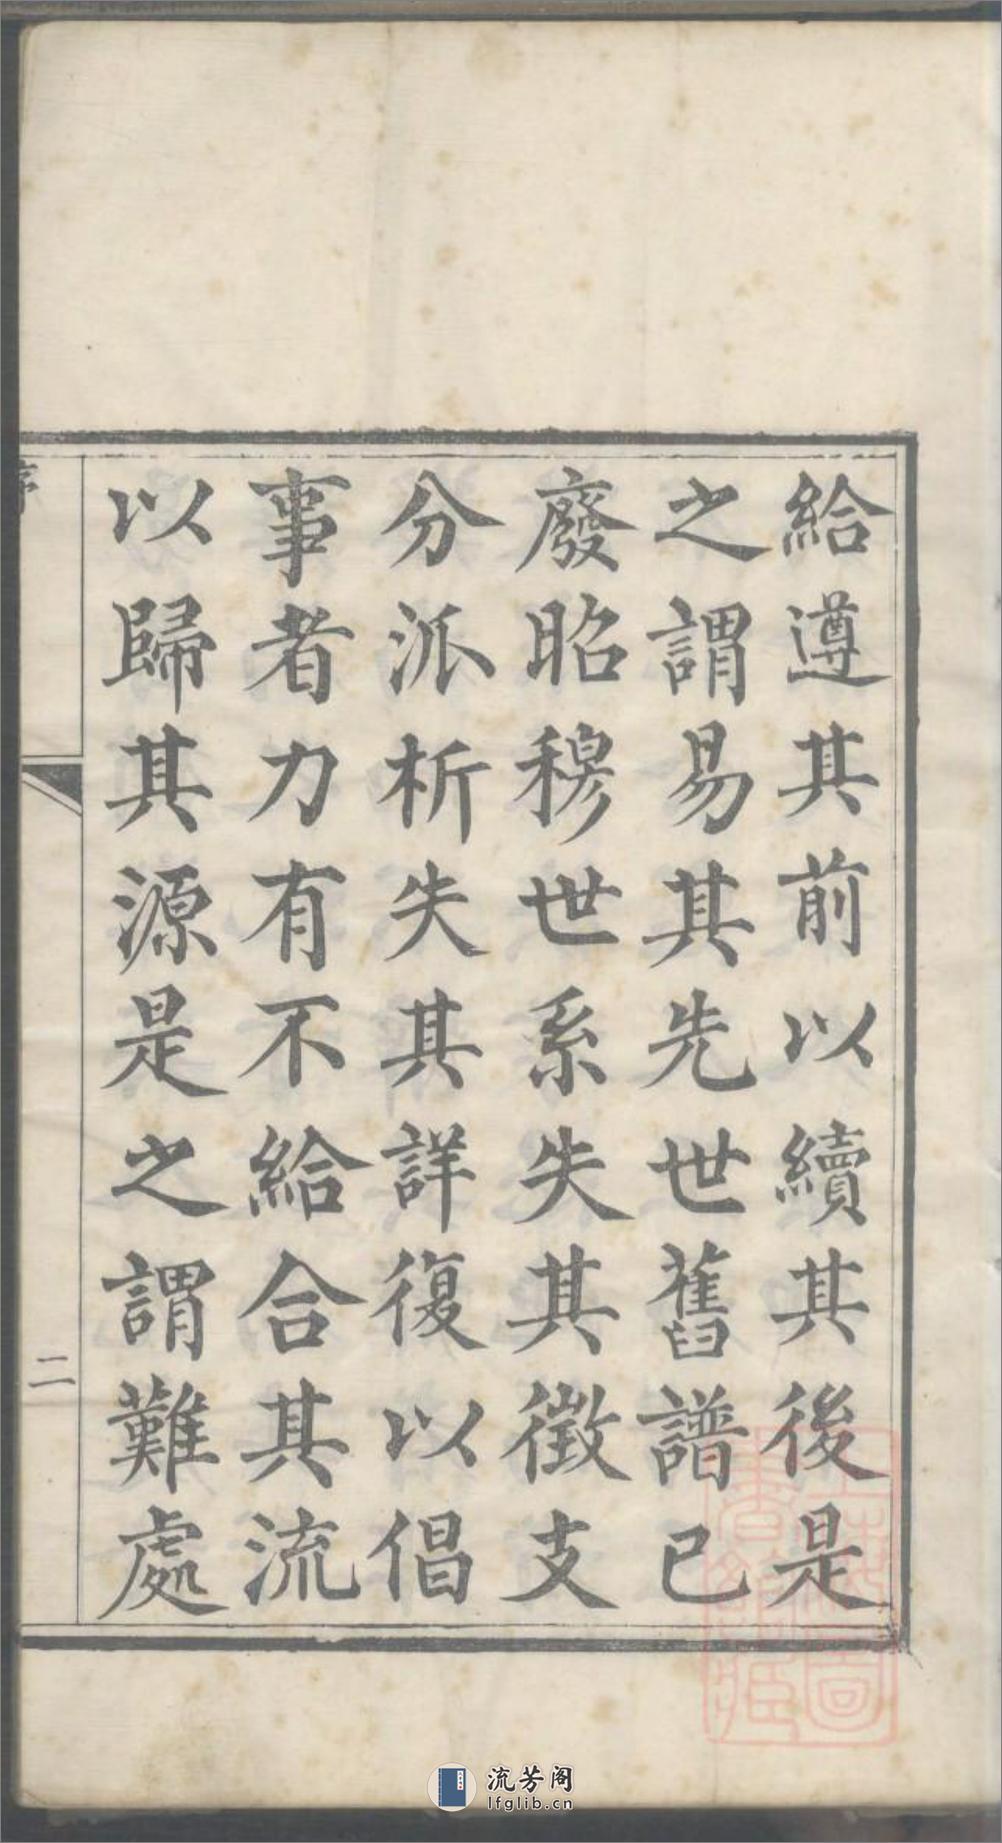 給遵其前以續其後是
之謂易其先世舊譜已
廢昭穆世系失其徵支
分派析失其詳復以倡
事者力有不給合其流
以歸其源是之謂難處
序
二
流芳阁
lfglib.cn